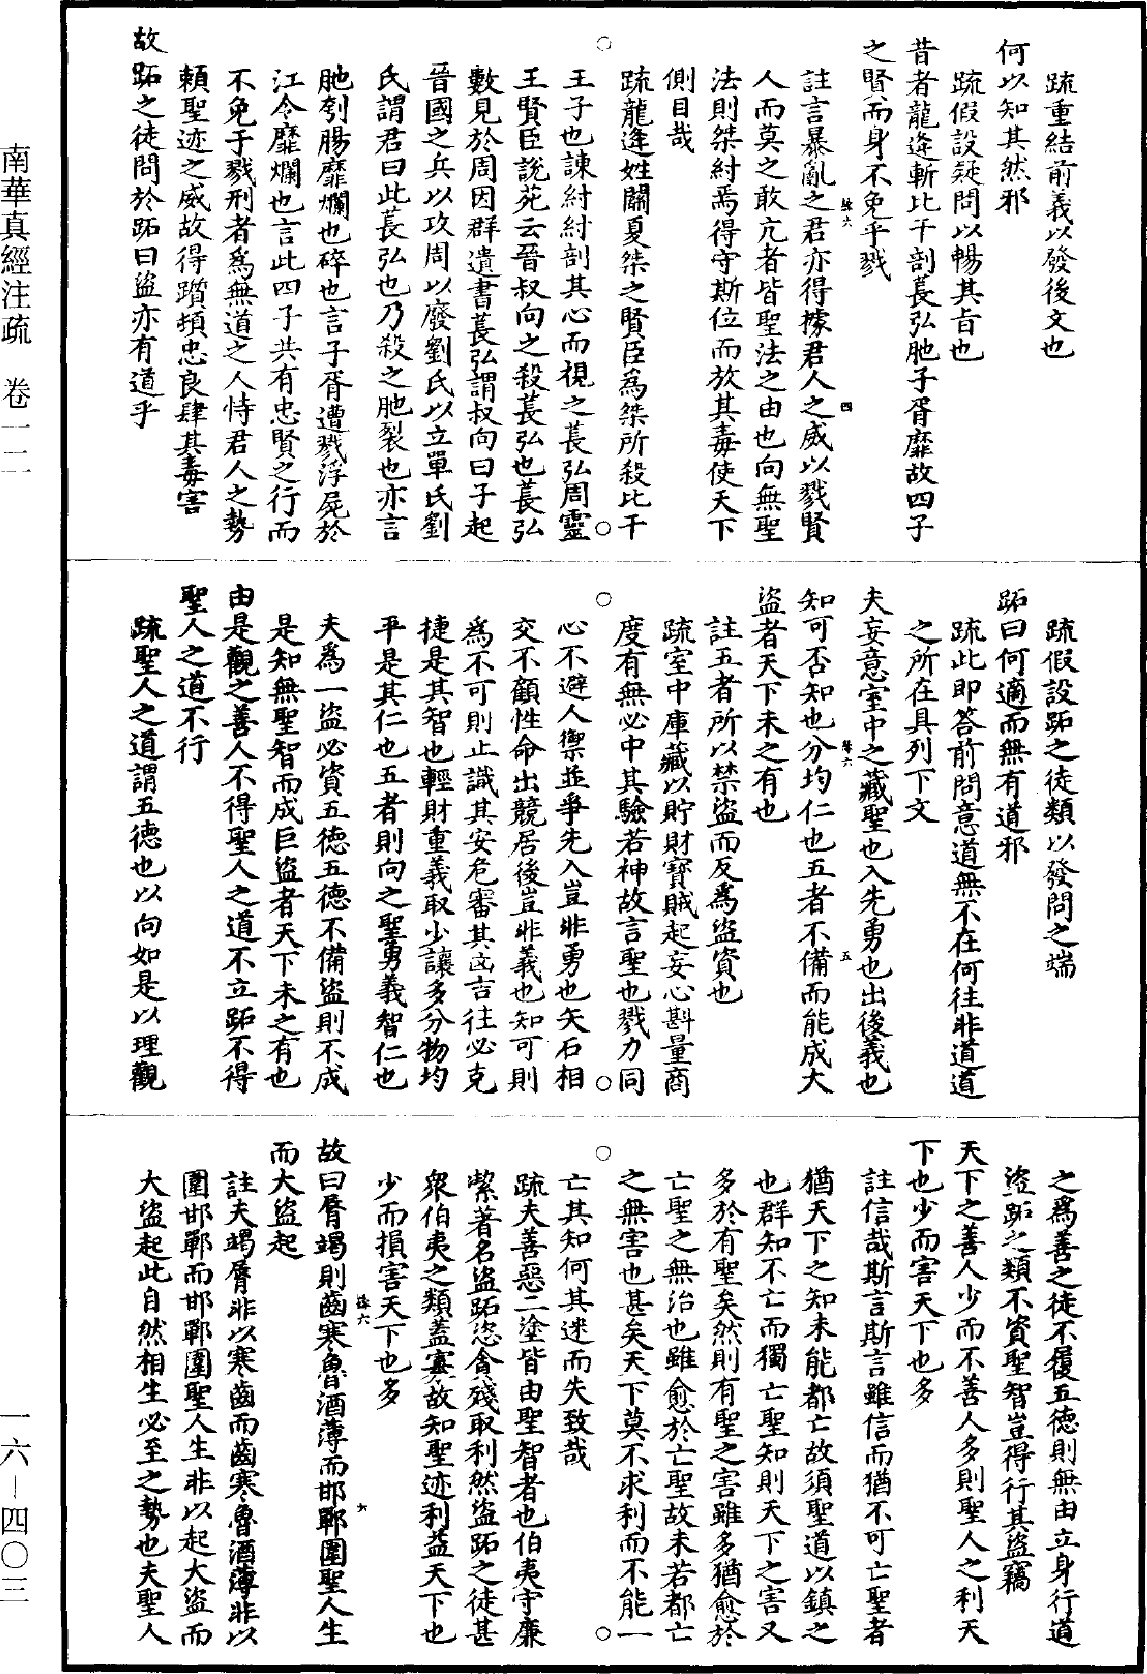 疏重結前義以發後文也
何以知其然邪
疏假設疑問以暢其旨也
昔者龍逄斬比干剖萇弘胣子胥靡故四子
之賢而身不免乎戮
註言暴亂之君亦得據君人之威以戮賢
人而莫之敢亢者皆聖法之由也向無聖
法則桀紂焉得守斯位而放其毒使天下
側目哉
疏龍逄姓關夏桀之賢臣爲桀所殺比干
王子也諫紂紂剖其心而視之萇弘周靈
王賢臣說苑云晉叔向之殺萇弘也萇弘
數見於周因群遺書萇弘謂叔向曰子起
晉國之兵以攻周以廢劉氏以立單氏劉
氏謂君曰此萇弘也乃殺之胣裂也亦言
胣刳腸靡爛也碎也言子胥遭戮浮屍於
江令靡爛也言此四子共有忠賢之行而
不免于戮刑者爲無道之人恃君人之勢
賴聖迹之威故得躓頓忠良肆其毒害
故跖之徒問於跖曰盜亦有道乎
疏假設跖之徒類以發問之端
跖曰何適而無有道邪
疏此即答前問意道無不在何往非道道
之所在具列下文
夫妄意室中之藏聖也入先勇也出後義也
知可否知也分均仁也五者不備而能成大
盜者天下未之有也
註五者所以禁盜而反爲盜資也
疏室中庫藏以貯財寶賊起妄心斟量商
度有無必中其驗若神故言聖也戮力同
心不避人禦並爭先入豈非勇也矢石相
交不顧性命出競居後豈非義也知可則
爲不可則止識其安危審其凶吉往必克
捷是其智也輕財重義取少讓多分物均
平是其仁也五者則向之聖勇義智仁也
夫爲一盜必資五德五德不備盜則不成
是知無聖智而成巨盜者天下未之有也
由是觀之善人不得聖人之道不立跖不得
聖人之道不行
疏聖人之道謂五德也以向如是以理觀
之爲善之徒不履五德則無由立身行道
盜跖之類不資聖智豈得行其盜竊
天下之善人少而不善人多則聖人之利天
下也少而害天下也多
註信哉斯言斯言雖信而猶不可亡聖者
猶天下之知未能都亡故須聖道以鎮之
也群知不亡而獨亡聖知則天下之害又
多於有聖矣然則有聖之害雖多猶愈於
亡聖之無治也雖愈於亡聖故未若都亡
之無害也甚矣天下莫不求利而不能一
亡其知何其迷而失致哉
疏夫善惡二塗皆由聖智者也伯夷守廉
絜著名盜跖恣貪殘取利然盜跖之徒甚
衆伯夷之類蓋寡故知聖迹利益天下也
少而損害天下也多
故曰脣竭則齒寒魯酒薄而邯鄲圍聖人生
而大盜起
註夫竭脣非以寒齒而齒寒魯酒薄非以
圍邯鄲而邯鄲圍聖人生非以起大盜而
大盜起此自然相生必至之勢也夫聖人
南華真經注疏 卷一二
一六—四〇三